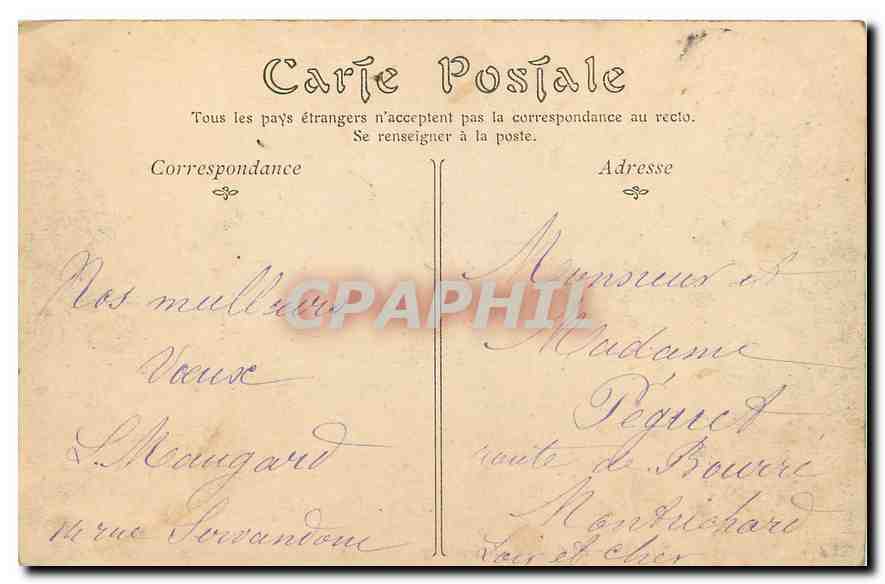 Carte Postale
Tous les pays étrangers n'acceptent pas la correspondance au recto.
Se renseigner à la poste.
Correspondance
Nos meilleurs
Vœux
L. Maugard
14 rue Servandoni
Adresse
Monsieur et
Madame
Péguet
route de Bourré
Montrichard
Loir et Cher
CPAPHIL